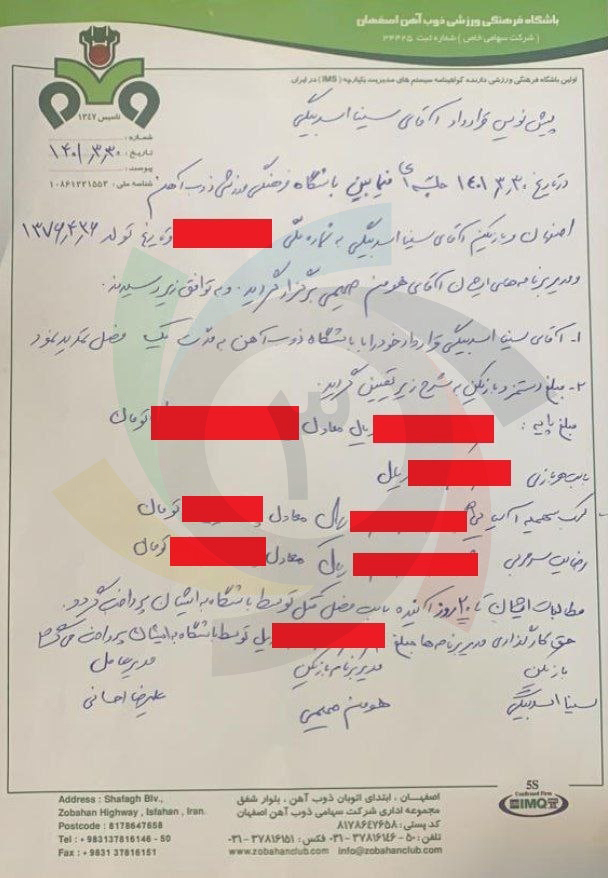 باشگاه فرهنگی ورزشی ذوب آهن اصفهان
( شرکت سهامی خاص ) شماره ثبت ۳۴۴۲۵
اولین باشگاه فرهنگی ورزشی دارنده گواهینامه سیستم های مدیریت یکپارچه (IMS) در ایران
تاسیس ۱۳۴۷
شماره :
تاریخ : ۱۴۰۱,۳,۳۰
پیوست :
شناسه ملی : ۱۰۸۶۱۲۲۱۵۵۲
پیش نویس قرارداد آقای سینا اسدبیگی
در تاریخ ۱۴۰۱,۳,۳۰ جلسه ای فیمابین باشگاه فرهنگی ورزشی ذوب آهن
اصفهان و بازیکن آقای سینا اسدبیگی به شماره ملی و تاریخ تولد ۱۳۷۶,۴,۲۶
و مدیر برنامه های ایشان آقای هومن صمیمی برگزار گردید. و به توافق زیر رسیدند.
۱- آقای سینا اسدبیگی قرارداد خود را با باشگاه ذوب آهن به مدت یک فصل تمدید نمود
۲- مبلغ دستمزد بازیکن به شرح زیر تعیین گردید.
مبلغ پایه : ریال معادل تومان
بابت بازی ریال
کسب سهمیه آسیایی ریال معادل تومان
رضایت سرمربی ریال معادل تومان
مطالبات ایشان تا ۲۰ روز آینده بابت فصل قبل توسط باشگاه به ایشان پرداخت گردد.
حق کارگذاری مدیر برنامه ها مبلغ ریال توسط باشگاه به ایشان پرداخت می گردد
بازیکن مدیر برنامه بازیکن مدیرعامل
سینا اسدبیگی هومن صمیمی علیرضا احسانی
۳
5S
Confirmed Firm
IMQ
اصفهـان ، ابتدای اتوبان ذوب آهن ، بلوار شفق
مجموعه اداری شرکت سهامی ذوب آهن اصفهان
کد پستی : ۸۱۷۸۶۴۷۶۵۸
تلفن : ۵۰ - ۳۷۸۱۶۱۴۶-۰۳۱ فکس : ۳۷۸۱۶۱۵۱-۰۳۱
www.zobahanclub.com info@zobahanclub.com
Address : Shafagh Blv.,
Zobahan Highway , Isfahan , Iran.
Postcode : 8178647658
Tel : + 983137816146 - 50
Fax : + 9831 37816151